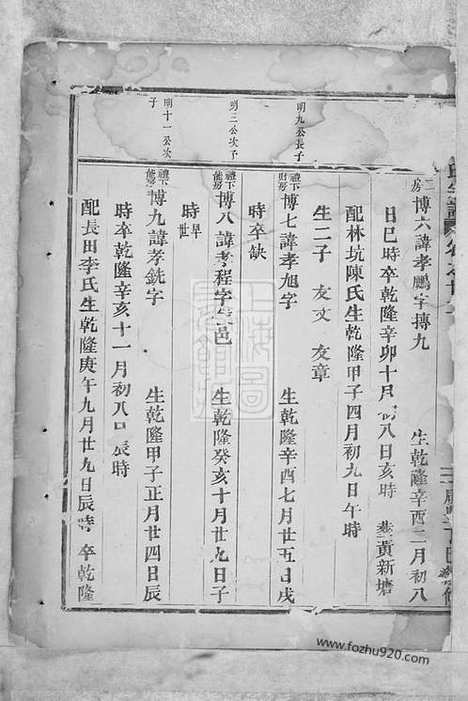 二房 博六諱孝鵬字摶九 生乾隆辛酉二月初八
日巳時卒乾隆辛卯十月初八日亥時 葬黃新塘
配林坑陳氏生乾隆甲子四月初九日午時
生二子 友文 友章
明九公長子
禮下財房 博七諱孝旭字 生乾隆辛酉七月廿五日戌
時卒缺
明三公次子
禮下 博八諱孝程字 邑 生乾隆癸亥十月廿九日子
時 早世
明十一公次子
禮下 博九諱孝銑字 生乾隆甲子正月廿四日辰
時卒乾隆辛亥十一月初八日辰時
配長田李氏生乾隆庚午九月廿九日辰時 卒乾隆
www.fozhu920.com